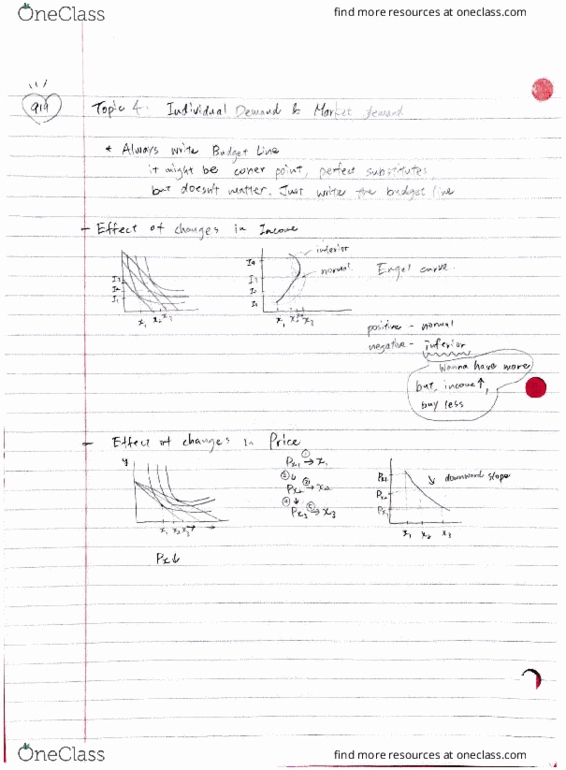 OneClass
find more resources at oneclass.com
Topic 4. Individual Demand & Market demand
* Always write Budget Line
it might be coner point, perfect substitutes,
but doesn't matter. Just write the budget line
- Effect of changes in Income
I3
I2
I1
x1 x2 x3
I4
I3
I2
I1
x1 x2 x3
inferior
normal
Engel curve
positive - normal
negative - inferior
Wanna have more
but, income↑,
buy less
- Effect of changes in Price
y
x1 x2 x3
Px↓
① Px1 → x1
②↓ Px2 ③→ x2
④↓ Px3 ⑤→ x3
Px2
Px1
x1 x2 x3
downward slope
OneClass
find more resources at oneclass.com